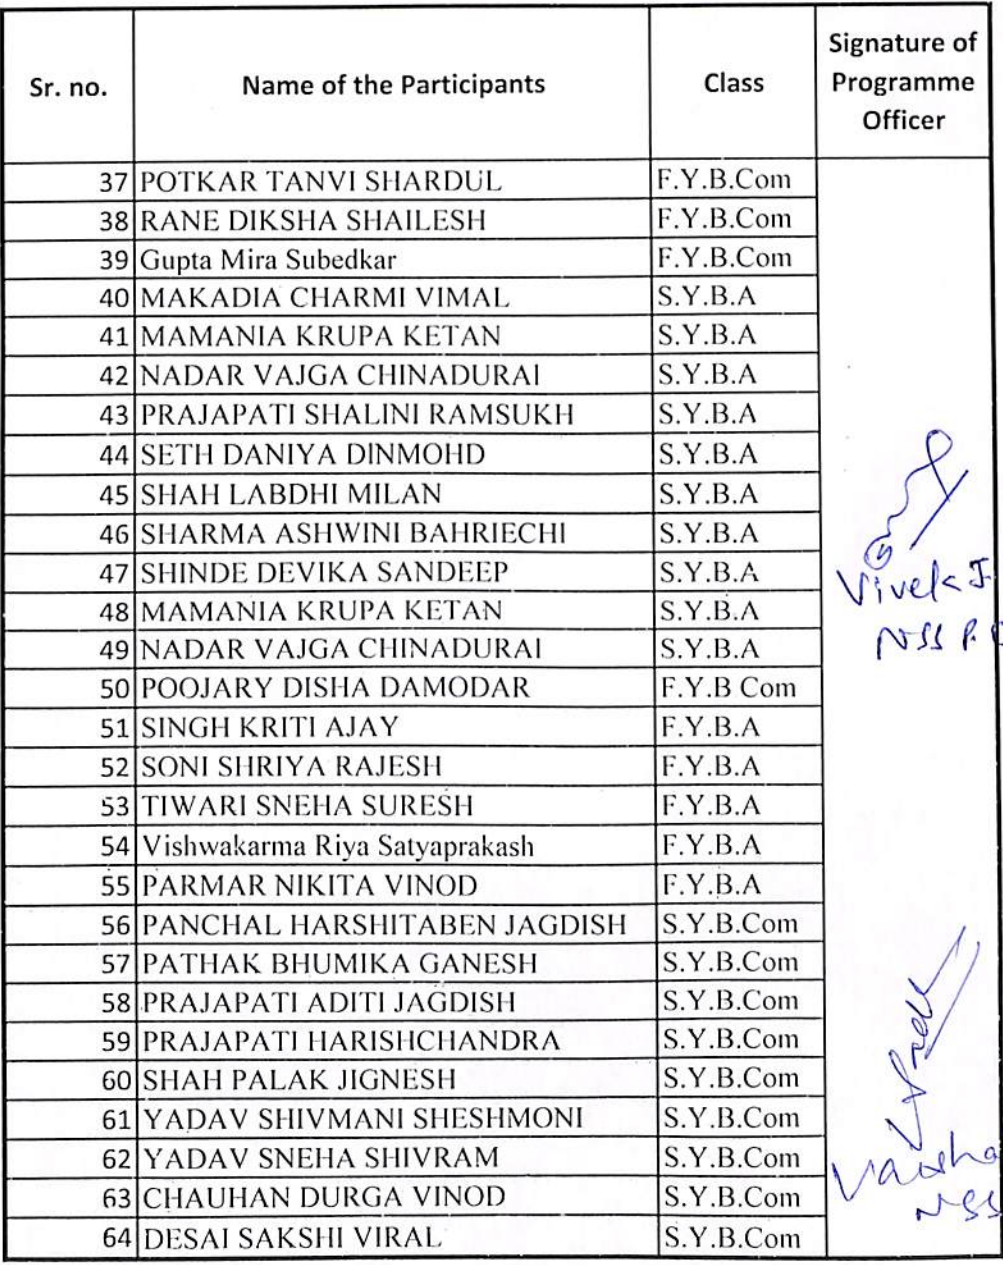 Sr. no. Name of the Participants Class Signature of Programme Officer
37 POTKAR TANVI SHARDUL F.Y.B.Com
38 RANE DIKSHA SHAILESH F.Y.B.Com
39 Gupta Mira Subedkar F.Y.B.Com
40 MAKADIA CHARMI VIMAL S.Y.B.A
41 MAMANIA KRUPA KETAN S.Y.B.A
42 NADAR VAJGA CHINADURAI S.Y.B.A
43 PRAJAPATI SHALINI RAMSUKH S.Y.B.A
44 SETH DANIYA DINMOHD S.Y.B.A
45 SHAH LABDHI MILAN S.Y.B.A
46 SHARMA ASHWINI BAHRIECHI S.Y.B.A
47 SHINDE DEVIKA SANDEEP S.Y.B.A
Vivek J.
48 MAMANIA KRUPA KETAN S.Y.B.A
49 NADAR VAJGA CHINADURAI S.Y.B.A
NSS P.
50 POOJARY DISHA DAMODAR F.Y.B Com
51 SINGH KRITI AJAY F.Y.B.A
52 SONI SHRIYA RAJESH F.Y.B.A
53 TIWARI SNEHA SURESH F.Y.B.A
54 Vishwakarma Riya Satyaprakash F.Y.B.A
55 PARMAR NIKITA VINOD F.Y.B.A
56 PANCHAL HARSHITABEN JAGDISH S.Y.B.Com
57 PATHAK BHUMIKA GANESH S.Y.B.Com
58 PRAJAPATI ADITI JAGDISH S.Y.B.Com
59 PRAJAPATI HARISHCHANDRA S.Y.B.Com
60 SHAH PALAK JIGNESH S.Y.B.Com
61 YADAV SHIVMANI SHESHMONI S.Y.B.Com
62 YADAV SNEHA SHIVRAM S.Y.B.Com
Varsha
63 CHAUHAN DURGA VINOD S.Y.B.Com
NSS
64 DESAI SAKSHI VIRAL S.Y.B.Com